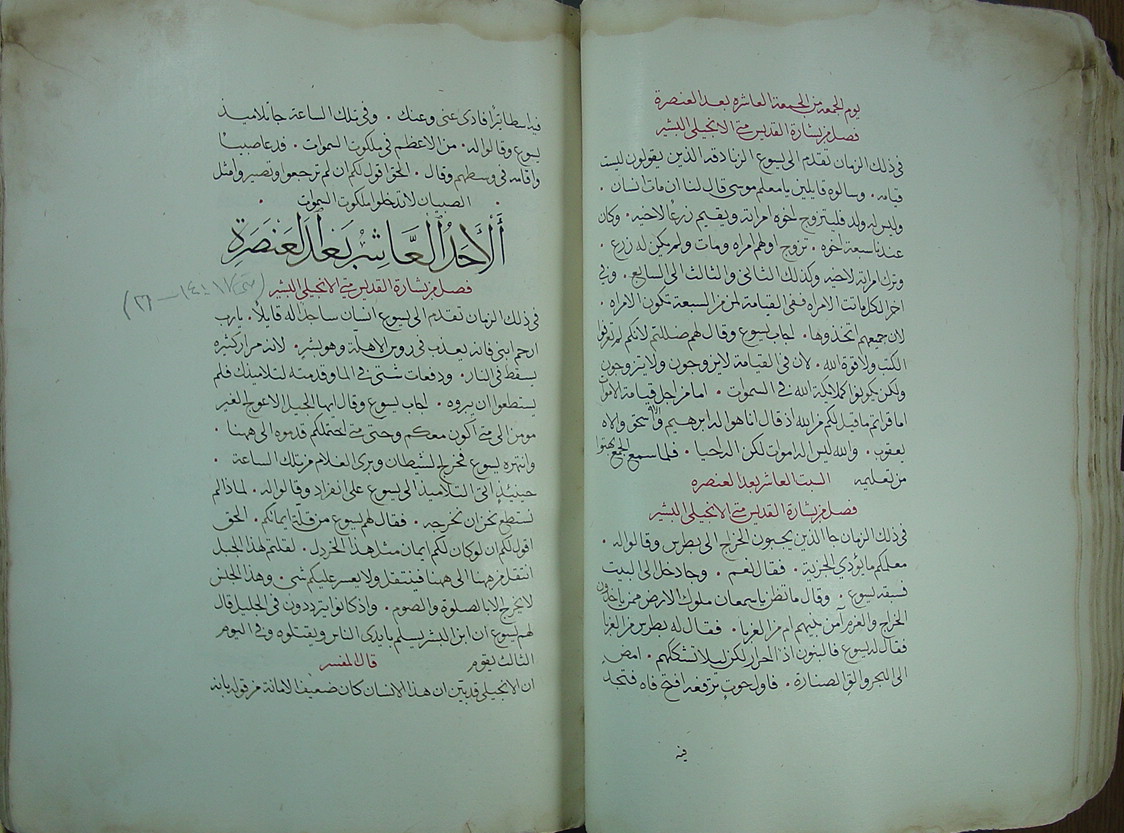 يوم الجمعه من الجمعة العاشره بعد العنصرة
فصل من بشارة القديس متى الانجيلي البشير
في ذلك الزمان تقدم الى يسوع الزنادقه الذين يقولون ليست
قيامه . وسالوه قايلين يا معلم موسى قال لنا ان مات انسان .
وليس له ولد فليتزوج اخوه امراته ويقيم زرعًا لاخيه . وكان
عندنا سبعة اخوه . تزوج اوهم امراه ومات ولم يكن له زرع .
وترك امراته لاخيه وكذلك الثاني والثالث الى السابع . وفي
اخر الكل ماتت الامراه ففي القيامة لمن من السبعة تكون الامراه .
لان جميعهم اتخذوها . اجاب يسوع وقال لهم ضللتم لانكم لم تعرفوا
الكتب ولا قوة الله . لان في القيامة لا يزوجون ولا يتزوجون
ولكن يكونوا كملايكة الله في السموات . اما من اجل قيامة الاموات
اما قراتم ما قيل لكم من الله اذ قال انا هو اله ابرهيم واله اسحق واله
يعقوب . والله ليس اله اموات لكن اله احيا . فلما سمع الجمع بهتوا
من تعليمه السبت العاشر بعد العنصره
فصل من بشارة القديس متى الانجيلي البشير
في ذلك الزمان جا الذين يجبون الخراج الى بطرس وقالوا له .
معلمكم ما يؤدي الجزية . فقال نعم . وجا دخل الى البيت
فسبقه يسوع . وقال ما تظن يا سمعان ملوك الارض ممن ياخذون
الخراج والغرم آمن بنيهم ام من الغربا . فقال له بطرس من الغربا
فقال له يسوع فالبنون اذًا احرار لكن ليلا نشككهم . امض
الى البحر والق الصنارة . فاول حوت ترفعه افتح فاه فتجد
فيه
فيه اسطاتيرًا فادي عني وعنك . وفي تلك الساعة جا تلاميذ
يسوع وقالوا له . من الاعظم في ملكوت السموات . فدعا صبيا
واقامه في وسطهم وقال . الحق اقول لكم ان لم ترجعوا وتصيروا مثل
الصبيان لا تدخلوا ملكوت السموات .
ألأحد العاشر بعد العنصرة
فصل من بشارة القديس متى الانجيلي البشير
في ذلك الزمان تقدم الى يسوع انسان ساجدًا له قايلًا . يا رب
ارحم ابني فانه يعذب في روس الاهلة وهو بشر . لانه مرار كثيره
يسقط في النار . ودفعات شتى في الما وقدمته لتلاميذك فلم
يستطعوا ان يبروه . اجاب يسوع وقال ايها الجيل الاعوج الغير
مومن الى متى اكون معكم وحتى متى احتملكم قدموه الى ههنا .
وانتهره يسوع فخرج الشيطان وبري الغلام من تلك الساعة .
حينيذٍ اتى التلاميذ الى يسوع على انفراد وقالوا له . لماذا لم
نستطع نحن ان نخرجه . فقال لهم يسوع من قلة ايمانكم . الحق
اقول لكم ان لو كان لكم ايمان مثل هذا الخردل . لقلتم لهذا الجبل
انتقل من ههنا الى ههنا فينتقل ولا يعسر عليكم شي . وهذا الجنس
لا يخرج الا بالصلوة والصوم . واذ كانوا يترددون في الجليل قال
لهم يسوع ان ابن البشر يسلم بايدى الناس ويقتلوه وفي اليوم
الثالث يقوم قال المفسر
ان الانجيلي قد بيّن ان هذا الانسان كان ضعيف الامانة من قوله بانه